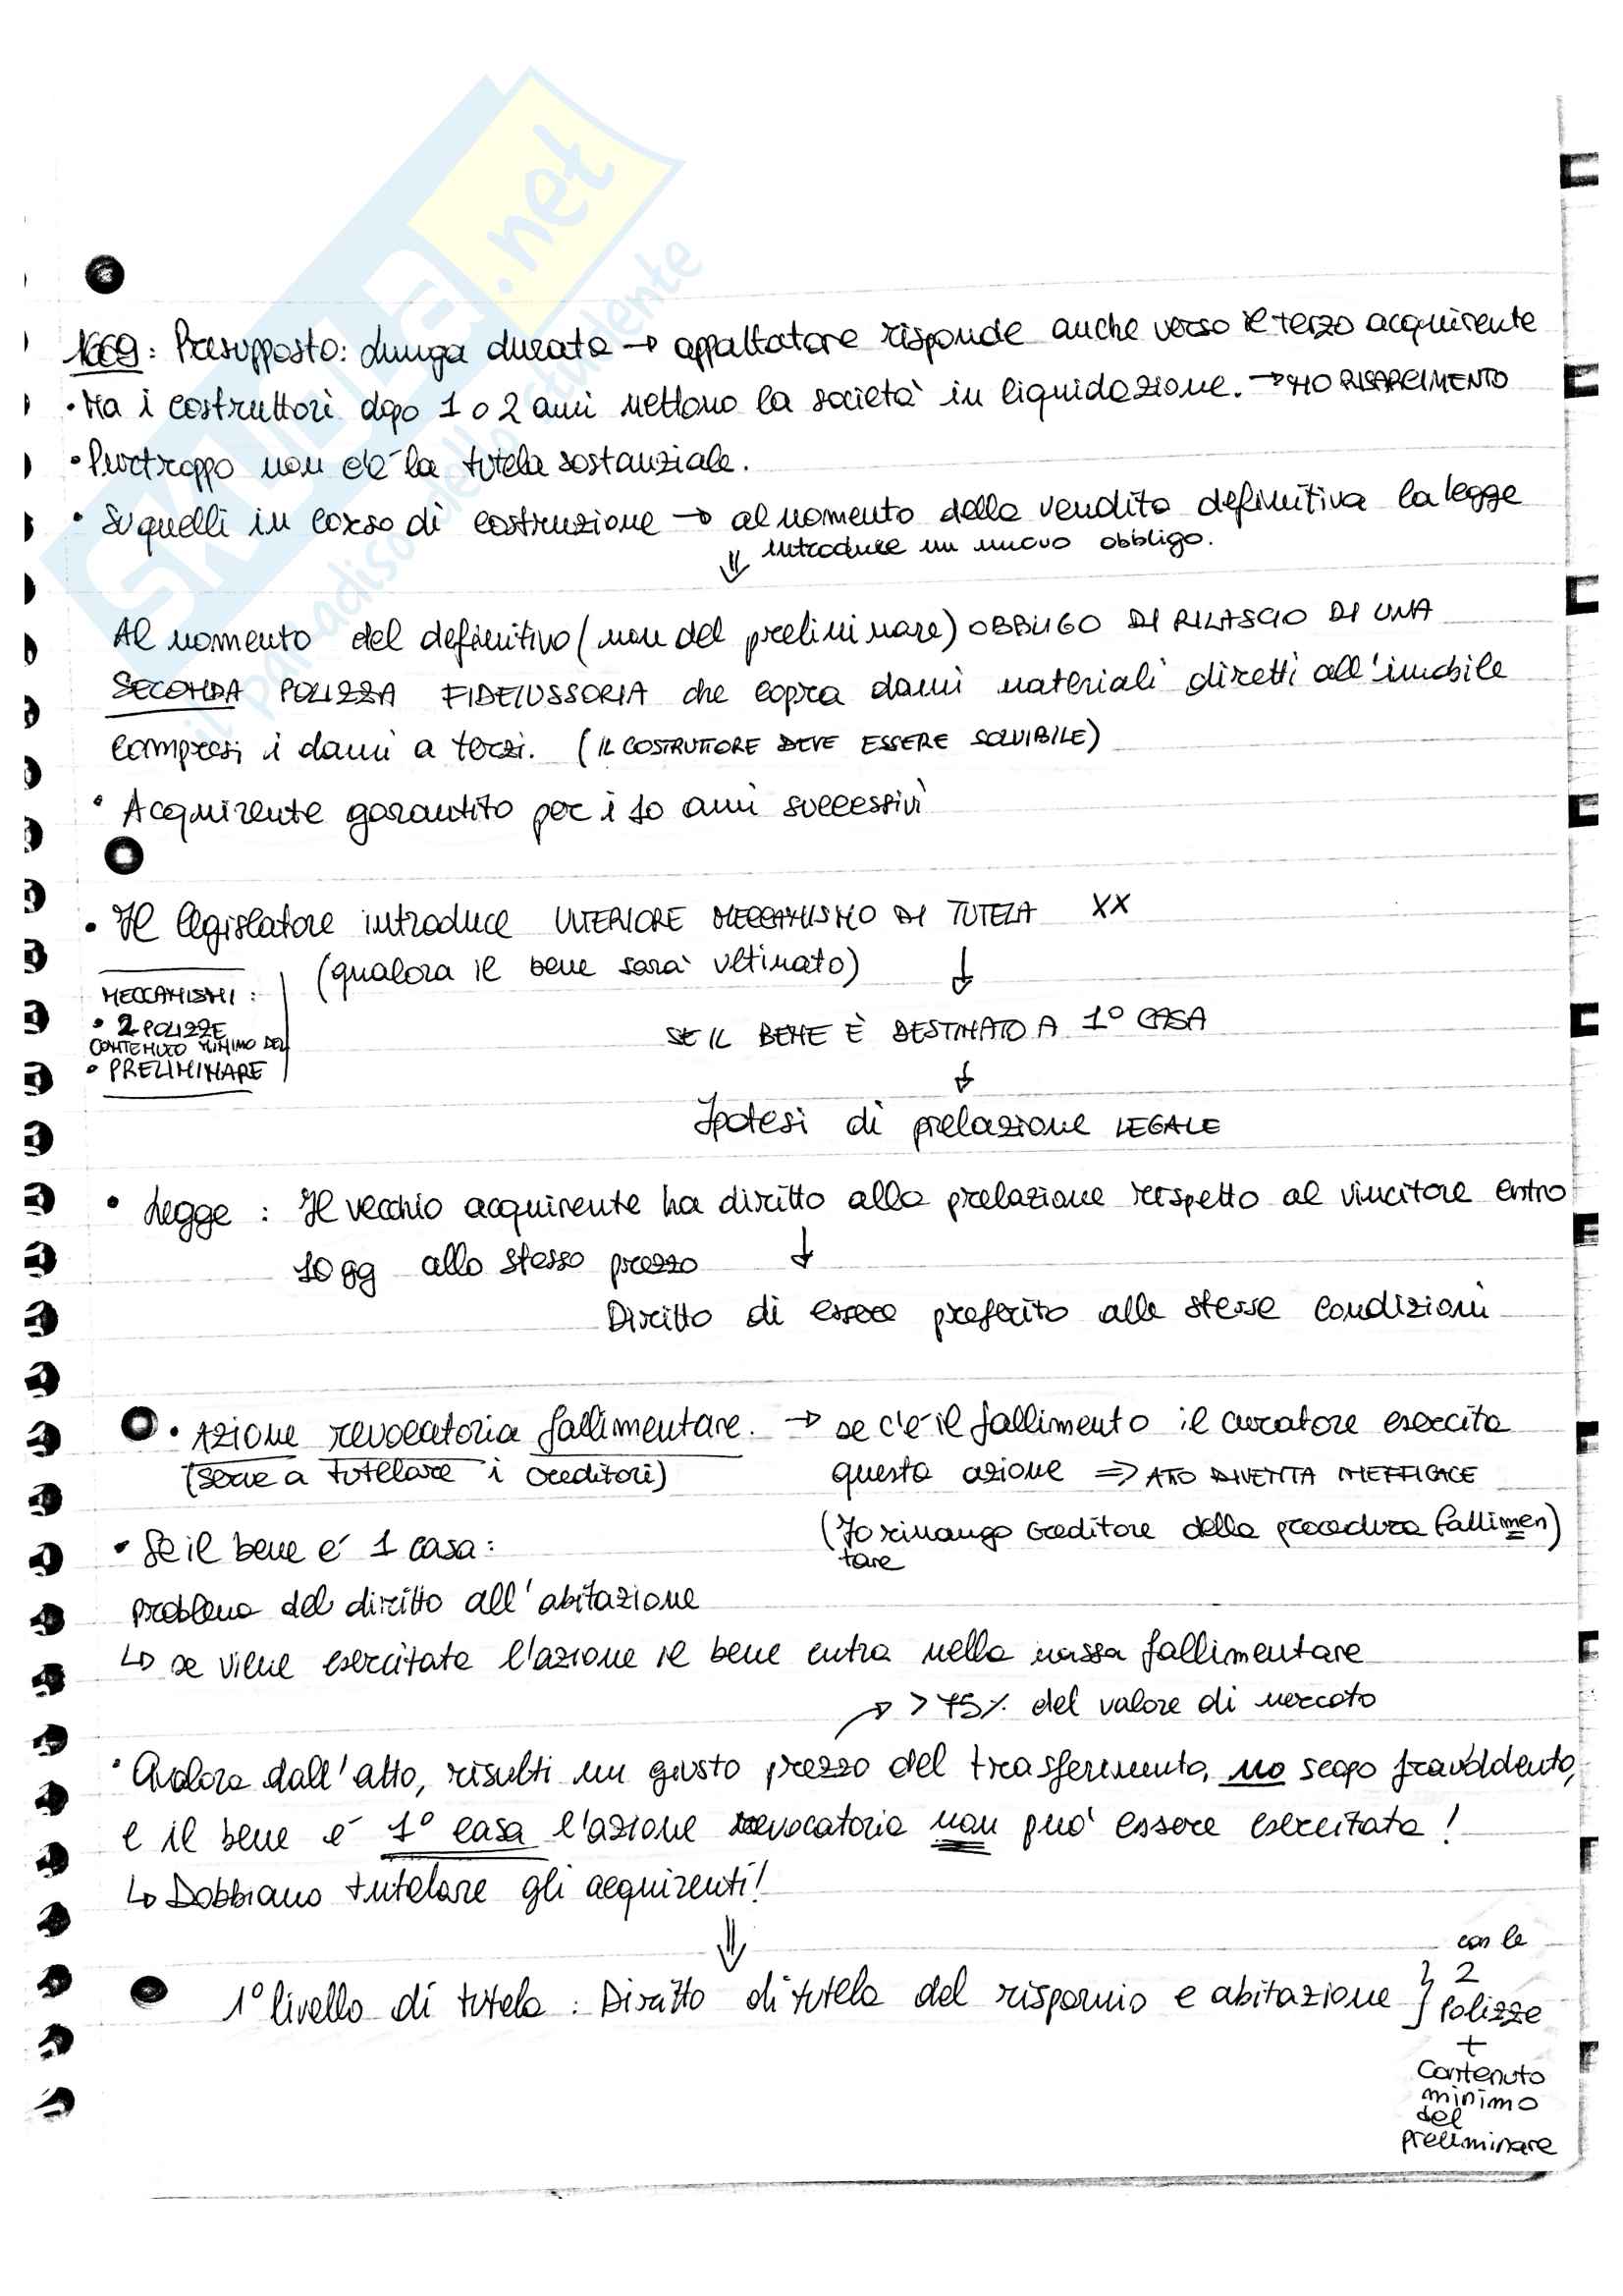 SKUOLA.net
il paradiso dello studente
1669: Presupposto: lunga durata → appaltatore risponde anche verso il terzo acquirente
• Ma i costruttori dopo 1 o 2 anni mettono la società in liquidazione. → NO RISARCIMENTO
• Purtroppo non c'è la tutela sostanziale.
• Su quelli in corso di costruzione → al momento della vendita definitiva la legge
⇓ introduce un nuovo obbligo.
Al momento del definitivo (non del preliminare) OBBLIGO DI RILASCIO DI UNA
SECONDA POLIZZA FIDEIUSSORIA che copra danni materiali diretti all'imobile
compresi i danni a terzi. (IL COSTRUTTORE DEVE ESSERE SOLVIBILE)
• Acquirente garantito per i 10 anni successivi
• Il legislatore introduce ULTERIORE MECCANISMO DI TUTELA XX
(qualora il bene sarà ultimato) ↓
MECCANISMI:
• 2 POLIZZE
CONTENUTO MINIMO DEL
• PRELIMINARE
SE IL BENE È DESTINATO A 1° CASA
↓
Ipotesi di prelazione LEGALE
• Legge: Il vecchio acquirente ha diritto alla prelazione rispetto al vincitore entro
10 gg allo stesso prezzo ↓
Diritto di essere preferito alle stesse condizioni
• Azione revocatoria fallimentare. → se c'è il fallimento il curatore esercita
(serve a tutelare i creditori) questa azione ⇒ ATTO DIVENTA INEFFICACE
(Io rimango creditore della procedura fallimen)
tare
• Se il bene é 1 casa:
problema del diritto all'abitazione
↳ se viene esercitata l'azione il bene entra nella massa fallimentare
→ > 75% del valore di mercato
• Qualora dall'atto, risulti un giusto prezzo del trasferimento, no scopo fraudolento,
e il bene é 1° casa l'azione revocatoria non può essere esercitata!
↳ Dobbiamo tutelare gli acquirenti!
⇓
1° livello di tutela: Diritto di tutela del risparmio e abitazione }
con le
2
Polizze
+
Contenuto
minimo
del
preliminare